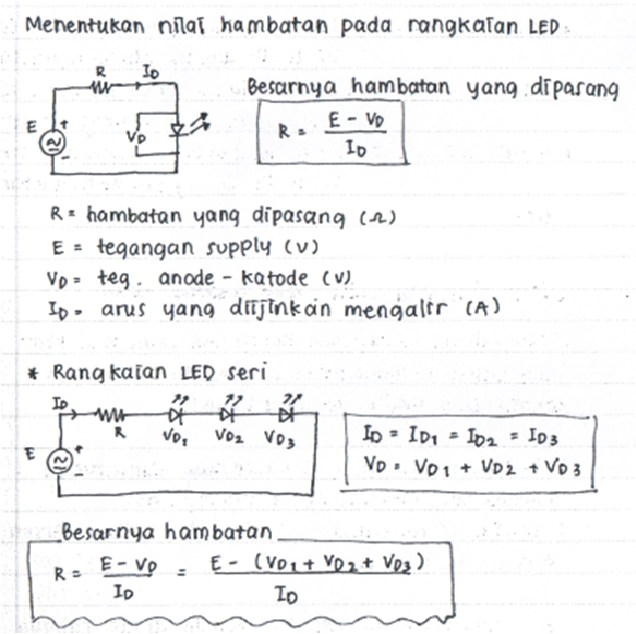 Menentukan nilai hambatan pada rangkaian LED.
R I_D
E + - V_D
Besarnya hambatan yang dipasang
R = (E - V_D) / I_D
R = hambatan yang dipasang (Ω)
E = tegangan supply (V)
V_D = teg. anode - katode (V)
I_D = arus yang diijinkan mengalir (A)
* Rangkaian LED seri
I_D
R V_D1 V_D2 V_D3
E + -
I_D = I_D1 = I_D2 = I_D3
V_D = V_D1 + V_D2 + V_D3
Besarnya hambatan
R = (E - V_D) / I_D = (E - (V_D1 + V_D2 + V_D3)) / I_D